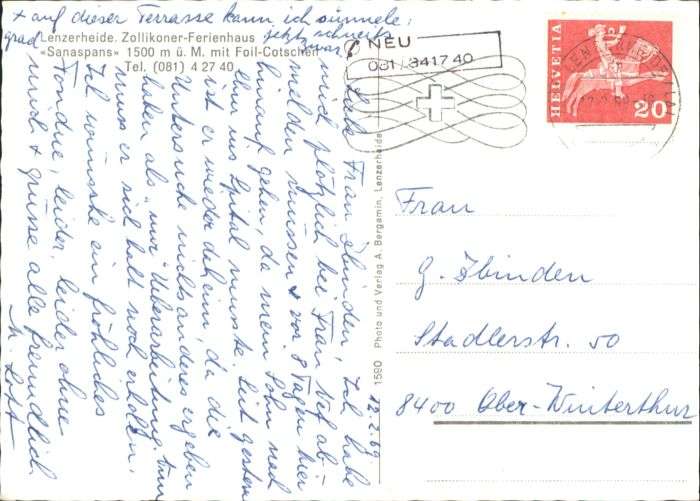 + auf dieser Terrasse kann ich sünnele;
grad jetzt schneits
zwar
Lenzerheide. Zollikoner-Ferienhaus
«Sanaspans» 1500 m ü. M. mit Foil-Cotschen
Tel. (081) 4 27 40
NEU
081 / 34 17 40
HELVETIA
20
12.2.69
Liebe Frau Zbinden, Ich habe
mich plötzlich bei Frau abmelden
müssen + vor 8 Tagen hier
hinauf gehen, da mein Sohn nach
ins Spital musste. Seit gestern
ist er wieder daheim, da die
Untersuche nichts anderes ergeben
haben als "nur" Überarbeitung. Nun
muss er sich halt noch erholen.
Ich wünsche ein fröhliches
Fondue, leider, leider ohne
mich + grüsse alle freundlich.
1590 Photo und Verlag A. Bergamin, Lenzerheide
Frau
G. Zbinden
Stadlerstr. 50
8400 Ober-Winterthur